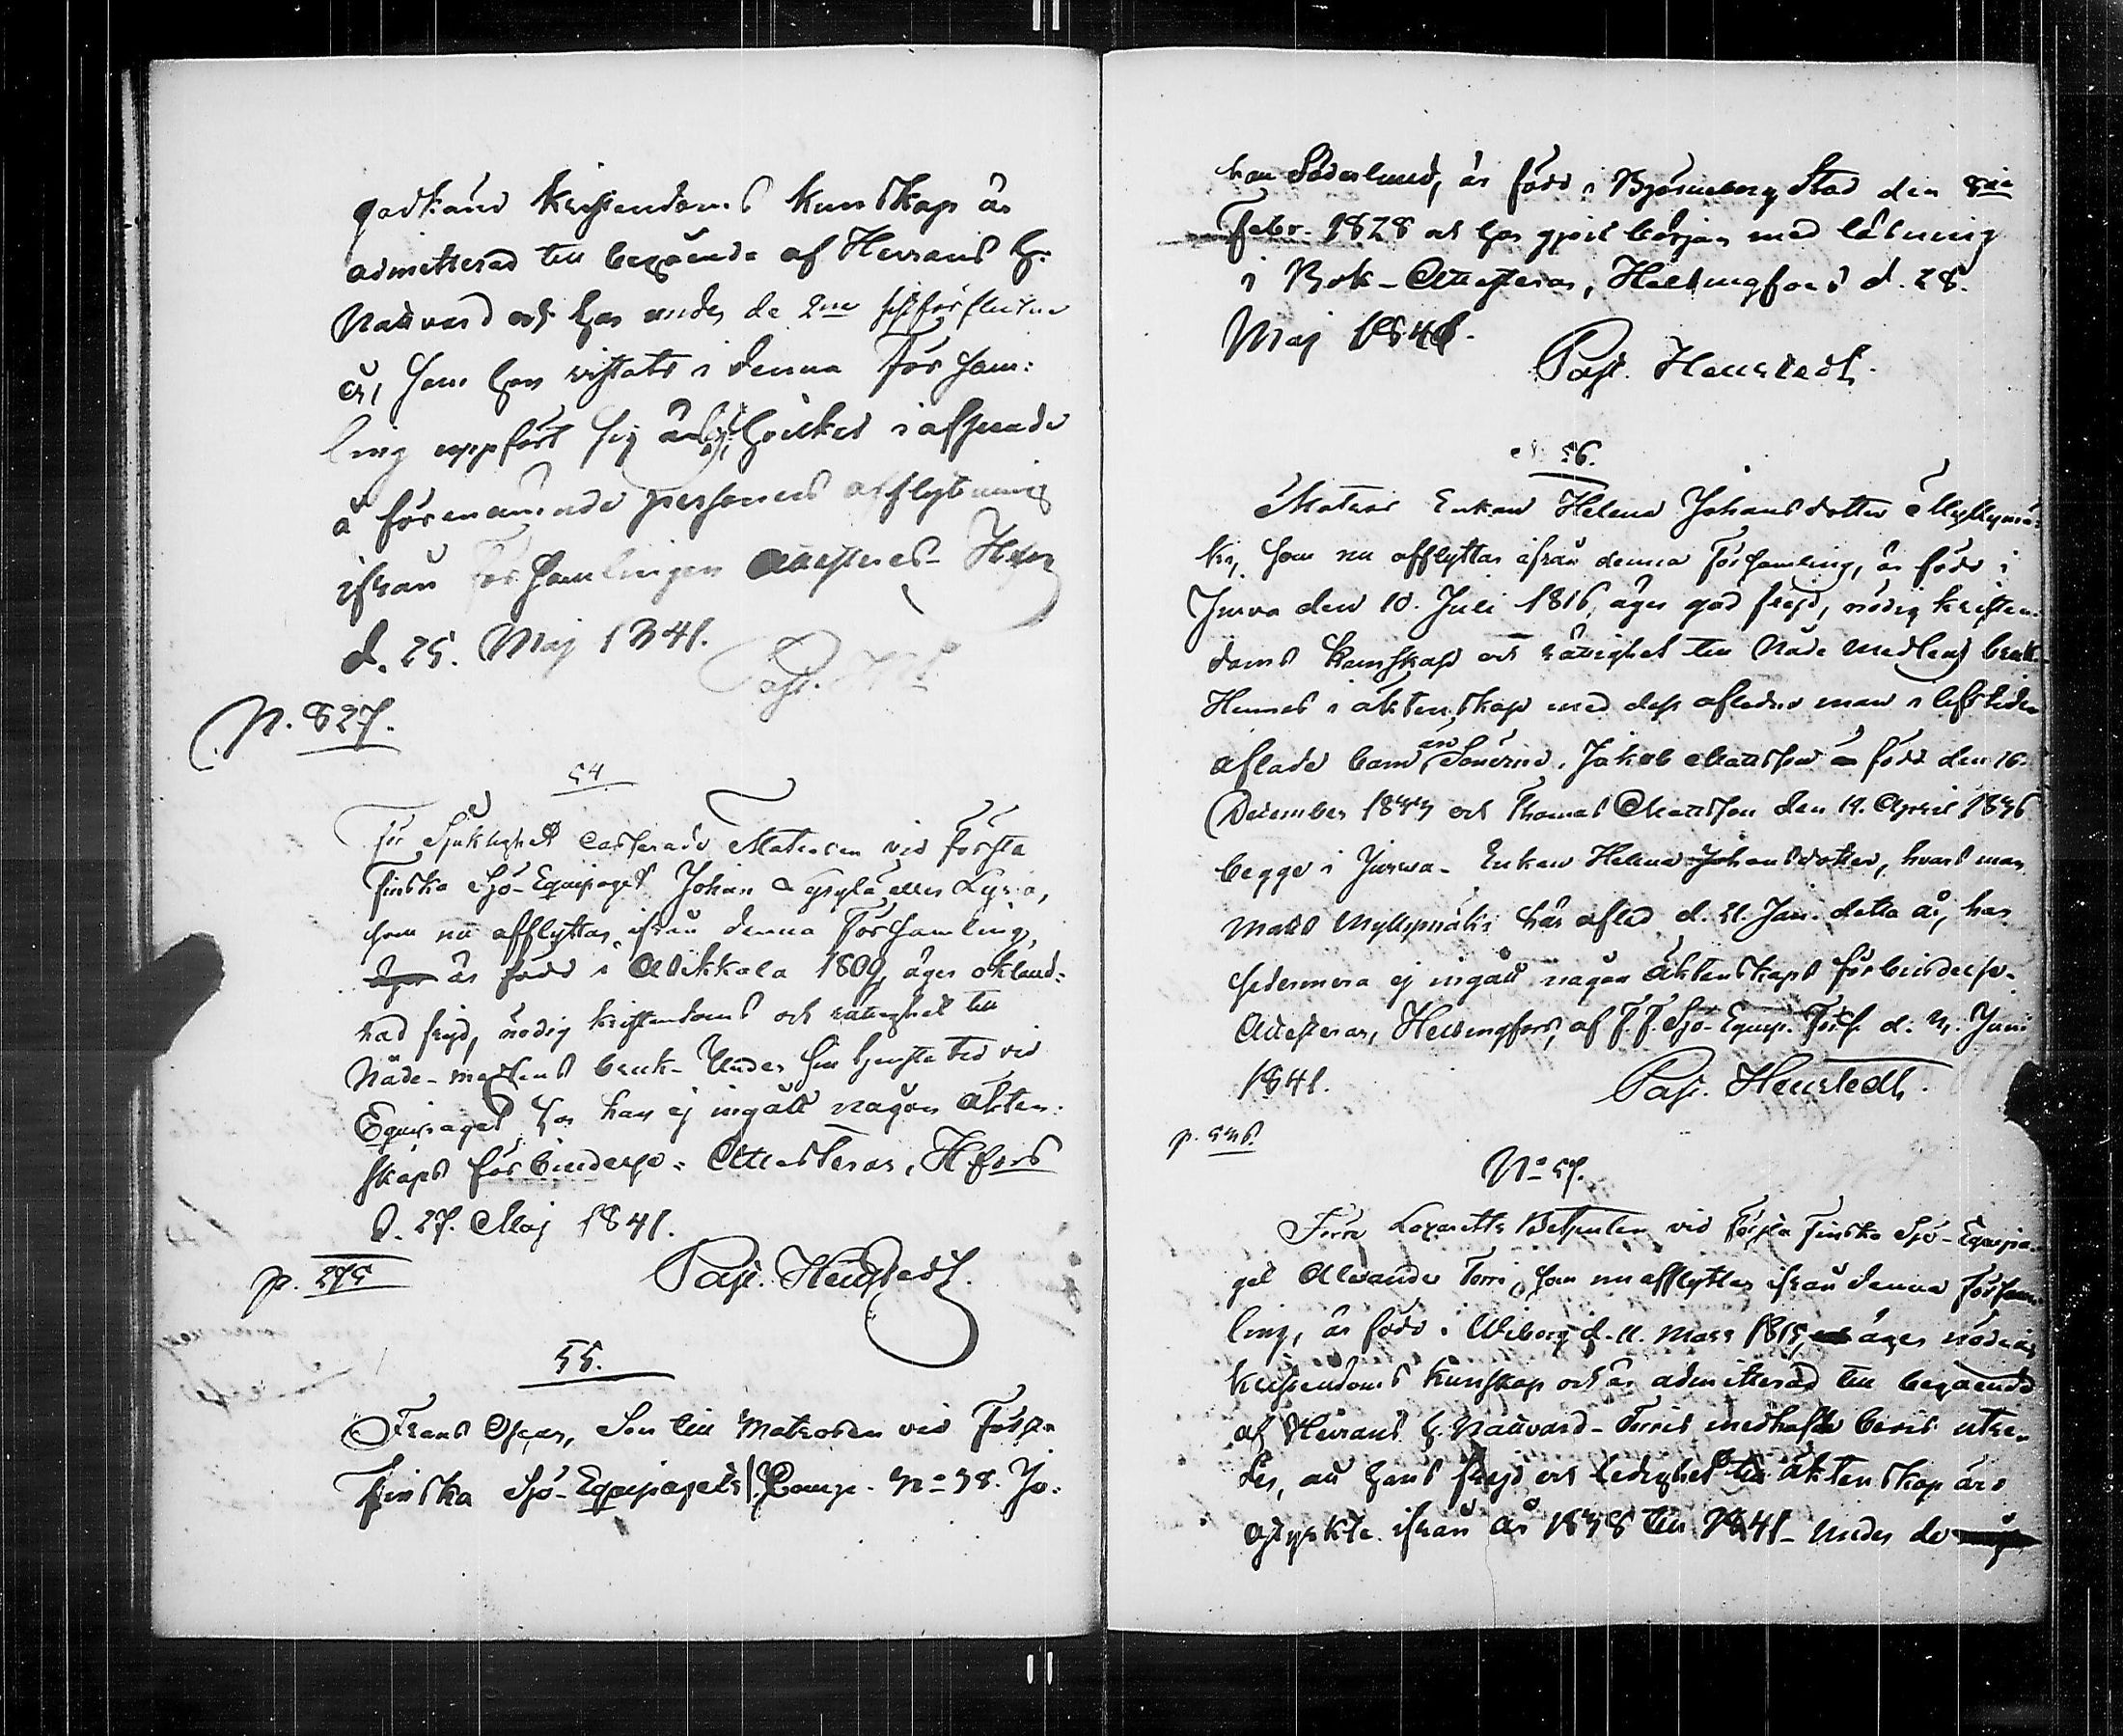 godkänd kristendoms kunskap är
admitterad till begående af Herrans H.
Nattvard och har under de 2ne sistförflutne
år, som han vistats i denna Försam:
ling uppfört sig hvilket i afseende
å förenämnde persons afflyttning
ifrån Församlingen attesteras. Hfors
d. 25. Maj 1841.
Past. Hst
N. 827.
54
För Sjuklighet casserade Matrosen vid Första
Finska Sjö-Equipaget Johan eller Lyra,
som nu afflyttar ifrån denna Församling,
är född i Asikkala 1809, äger okland:
rad frejd, nödig kristendoms och rättighet till
Nåde-medlens bruk. Under sin tjenste tid vid
Equipaget har han ej ingått någon äkten:
skaps förbindelse. Attesteras, Hfors
d. 27. Maj 1841.
p. 275
Past. Heurstedt.
55.
Frans Oscar, Son till Matrosen vid Första
Finska Sjö-Equipagets Comp. No 38. Jo:
han Söderlund, är född i Björneborg Stad den 8de
Febr. 1828 och har gjort början med läsning
i Bok. Attesteras, Helsingfors d. 28.
Maj 1841.
Past. Heurstedt.
56.
Matros Enkan Helena Johansdotter Myllymä:
ki, som nu afflyttar ifrån denna Församling, är född i
Jurva den 10. Juli 1816, äger god frejd, nödig kristen:
doms kunskap och rättighet till Nåde medlens bruk.
Hennes i äktenskap med dess aflidne man i lifstiden
aflade barn äro Sönerne, Jakob Mattsson född den 16.
December 1833 och Thomas Mattsson den 19. April 1836
begge i Jurva. Enkan Helena Johansdotter, hvars man
Matts Myllymäki här afled d. 21. Jan. detta år, har
sedermera ej ingått någon äktenskaps förbindelse.
Attesteras, Helsingfors, af F. F. Sjö-Equip. Förs. d. 3. Juni
1841.
Past. Heurstedt.
p. 336.
No 57.
Förre Lazaretts Betjenten vid Första Finska Sjö-Equipa:
get Alexander Torri, som nu afflyttar ifrån denna Försam:
ling, är född i Wiborg d. 11. Mars 1815, äger nödig
kristendoms kunskap och är admitterad till begående
af Herrans H. Nattvard. Torris medhafde bevis utvi:
ser, att hans frejd och ledighet till äktenskap äro
ostyrkte ifrån år 1838 till 1841. Under de